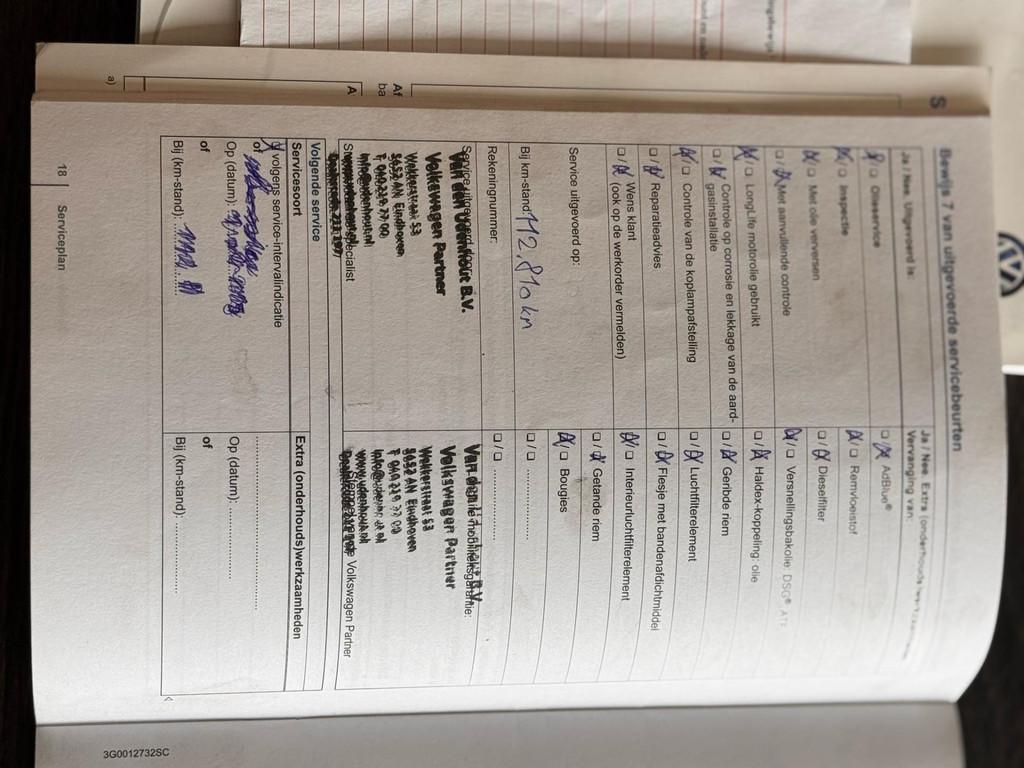 Bewijs 7 van uitgevoerde servicebeurten
Ja / Nee Uitgevoerd is:
Olieservice
Inspectie
Met olie verversen
Met aanvullende controle
LongLife motorolie gebruikt
Controle op corrosie en lekkage van de aard-
gasinstallatie
Controle van de koplampafstelling
Reparatieadvies
Wens klant
(ook op de werkorder vermelden)
Service uitgevoerd op:
Bij km-stand 112.810 km
Rekeningnummer:
Service uitgevoerd door:
Van den Udenhout B.V.
Volkswagen Partner
Wekkerstraat 53
5652 AN Eindhoven
Ja / Nee Extra (onderhouds
Vervanging van:
AdBlue®
Remvloeistof
Dieselfilter
Versnellingsbakolie: DSG®
Haldex-koppeling: olie
Geribde riem
Luchtfilterelement
Flesje met bandenafdichtmiddel
Interieurluchtfilterelement
Getande riem
Bougies
mobiliteitsgarantie:
Volkswagen Partner
Wekkerstraat 53
5652 AN Eindhoven
Volkswagen Partner
Volgende service
Servicesoort
volgens service-intervalindicatie
of
Op (datum):
of
Bij (km-stand):
Extra (onderhouds)werkzaamheden
Op (datum):
of
Bij (km-stand):
18 Serviceplan
3G0012732SC
a)
A
Af
ba
S